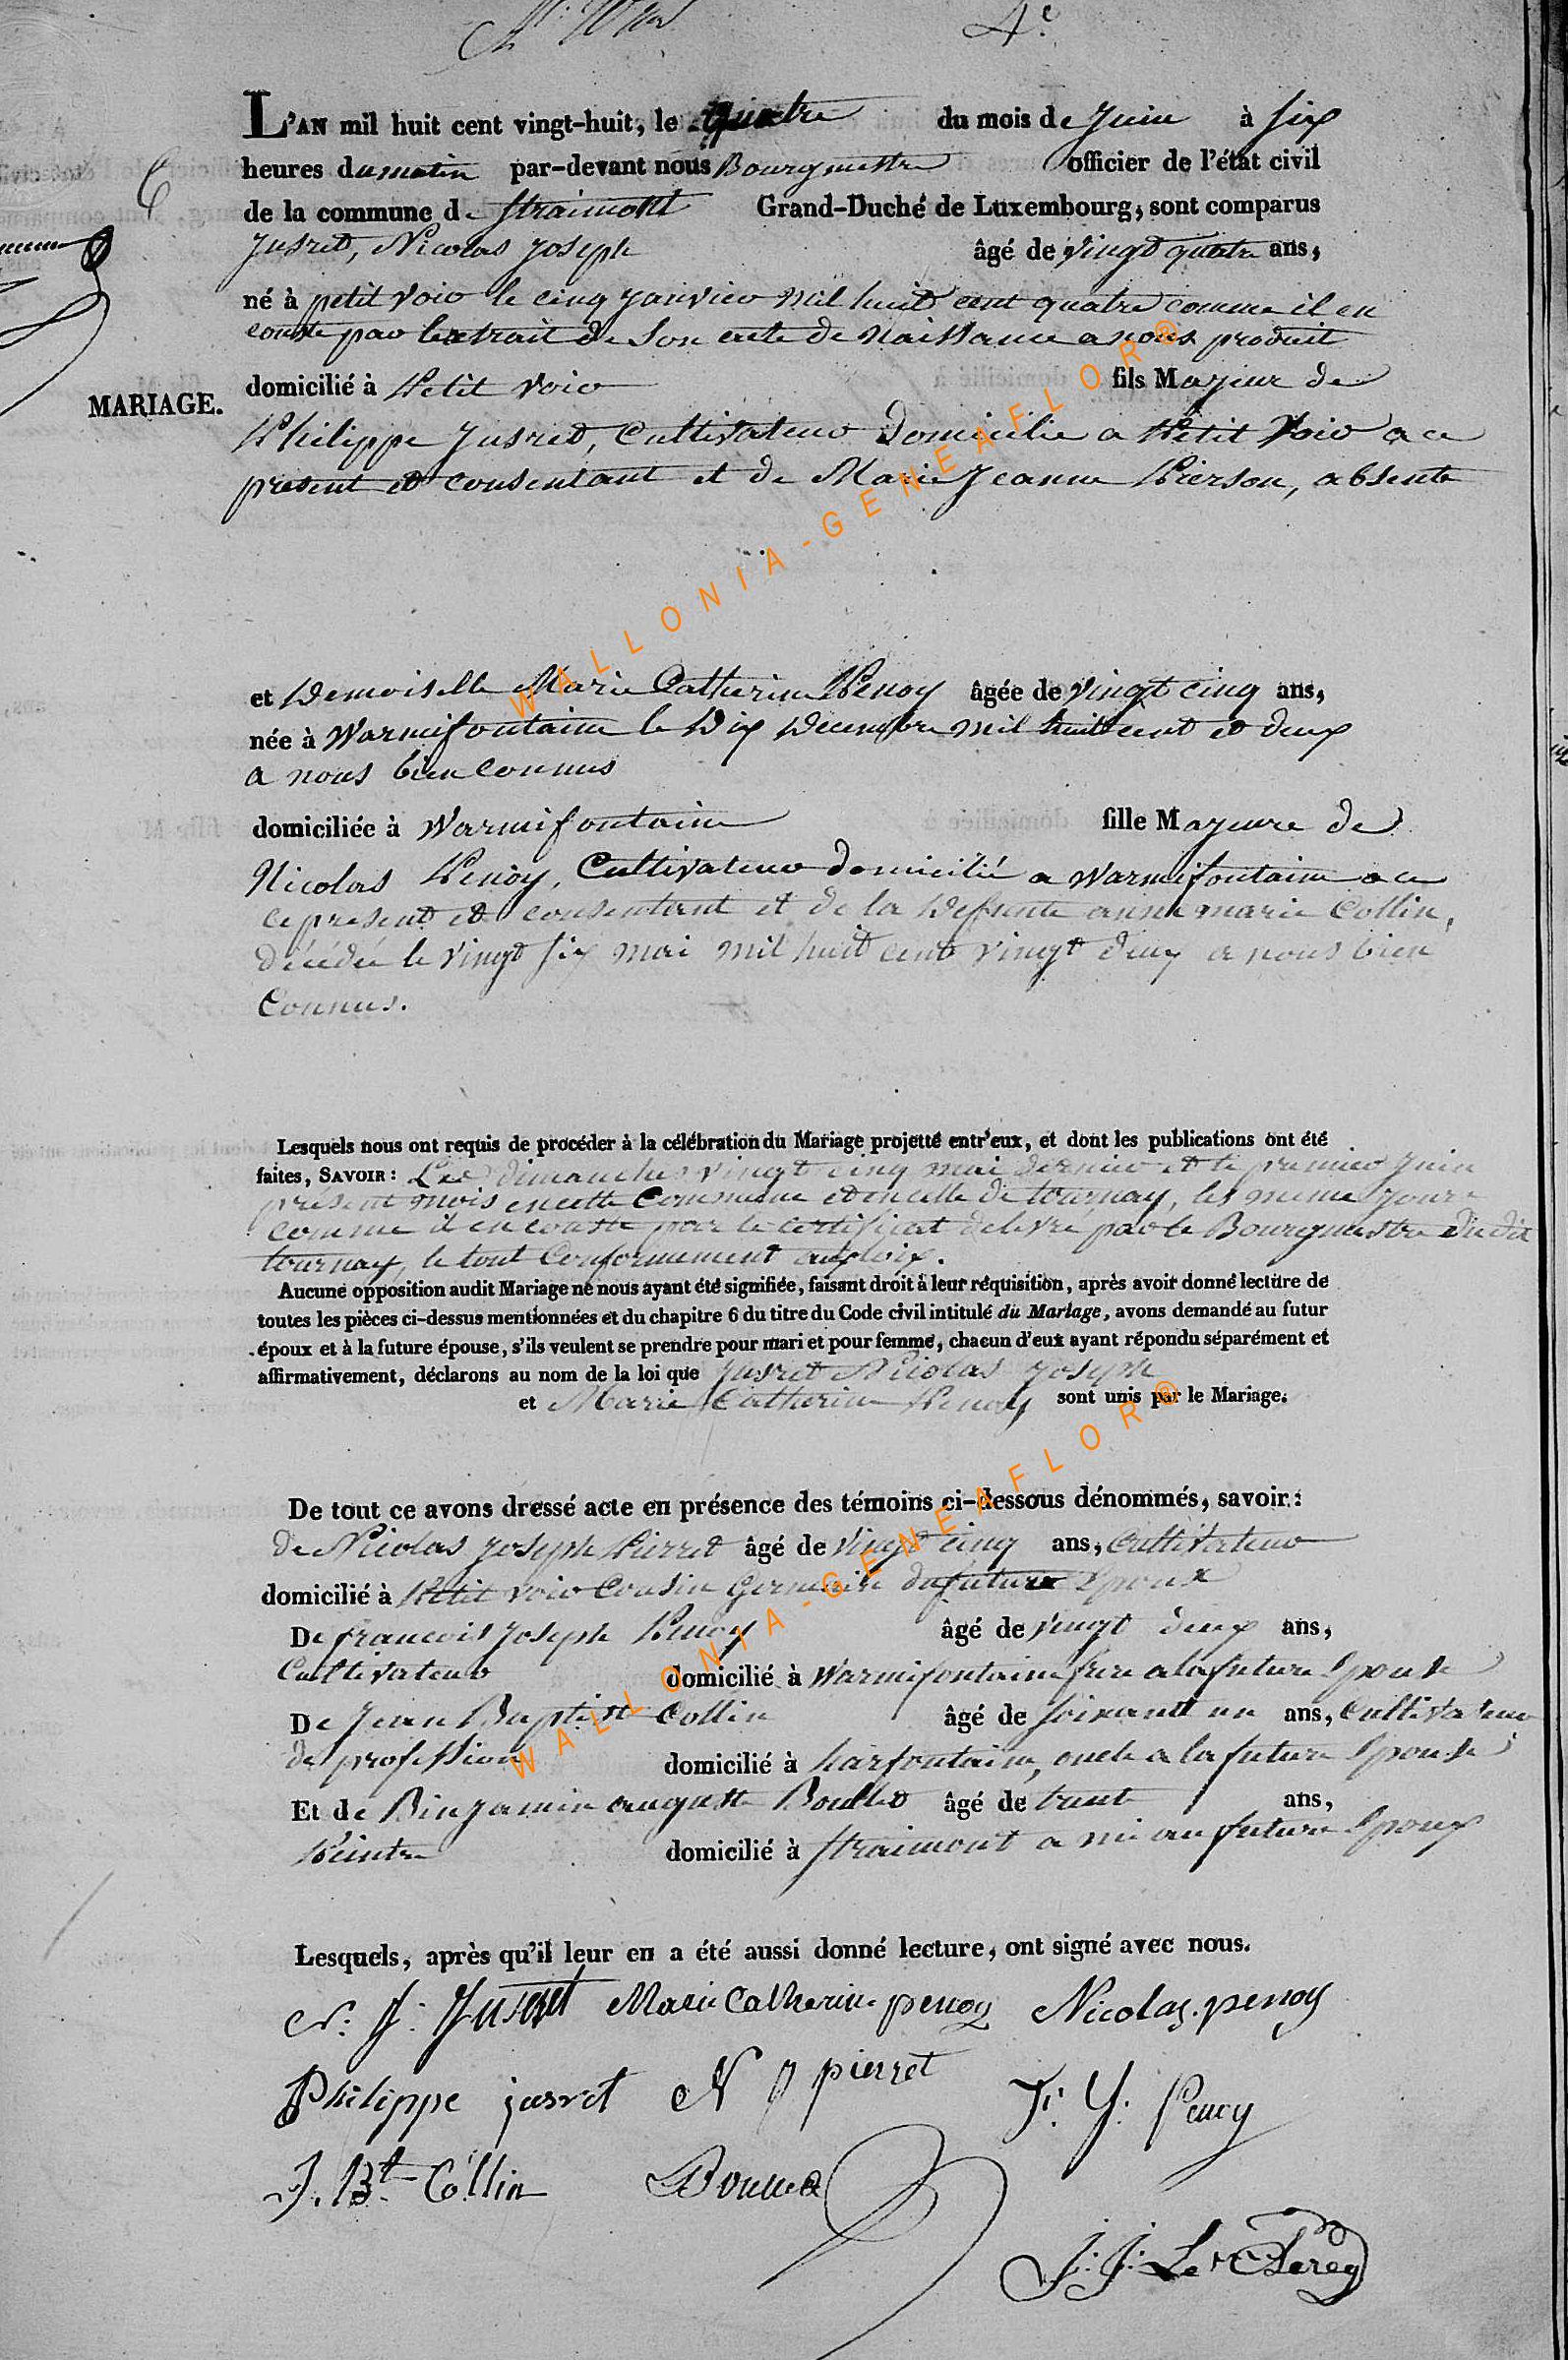 4e
L'AN mil huit cent vingt-huit, le quatre du mois de Juin à six
heures du matin par-devant nous Bourgmestre officier de l'état civil
de la commune de straimont Grand-Duché de Luxembourg, sont comparus
Jusret, Nicolas Joseph âgé de vingt quatre ans,
né à petit voir le cinq janvier mil huit cent quatre comme il en
conste par l'extrait de son acte de Naissance a nous produit
MARIAGE.
domicilié à Petit Voir fils Majeur de
Philippe Jusret, Cultivateur Domicilié a Petit Voir a ce
present et consentant et de Marie Jeanne Pierson, absente
et Demoiselle Marie Catherine Penoy âgée de vingt cinq ans,
née à Warmifontaine le Dix Decembre mil huit cent et deux
a nous bien connus
domiciliée à Warmifontaine fille Majeure de
Nicolas Penoy, Cultivateur domicilié a Warmifontaine a ce
ce present et consentant et de la Defunte anne marie Collin,
décédée le vingt six mai mil huit cent vingt deux a nous bien
Connus.
Lesquels nous ont requis de procéder à la célébration du Mariage projetté entr'eux, et dont les publications ont été
faites, SAVOIR: Les dimanches vingt cinq mai dernier et le premier Juin
présent mois en cette Commune et en celle de tournay, les meme jours
comme il en conste par le certificat delivré par le Bourgmestre du dit
tournay, le tout Conformement aux loix.
Aucune opposition audit Mariage ne nous ayant été signifiée, faisant droit à leur réquisition, après avoir donné lecture de
toutes les pièces ci-dessus mentionnées et du chapitre 6 du titre du Code civil intitulé du Mariage, avons demandé au futur
époux et à la future épouse, s'ils veulent se prendre pour mari et pour femme, chacun d'eux ayant répondu séparément et
affirmativement, déclarons au nom de la loi que Jusret Nicolas Joseph
et Marie Catherine Penoy sont unis par le Mariage.
De tout ce avons dressé acte en présence des témoins ci-dessous dénommés, savoir:
de Nicolas Joseph Pierret âgé de vingt cinq ans, Cultivateur
domicilié à Petit voir Cousin Germain du futur Epoux
De francois Joseph Penoy âgé de vingt deux ans,
Cultivateur domicilié à Warmifontaine frere a la future Epouse
De Jean Baptiste Collin âgé de soixante un ans, Cultivateur
de profession domicilié à harfontaine, oncle a la future Epouse
Et de Binjamin auguste âgé de trente ans,
Peintre domicilié à straimont a mi au future Epoux
Lesquels, après qu'il leur en a été aussi donné lecture, ont signé avec nous.
N: J: Jusret Marie Catherine penoy Nicolas penoy
Philippe jusret N J pierret F: J: Penoy
J. Bt Collin
J: J: Le Clercq
WALLONIA-GENEAFLOR®
WALLONIA-GENEAFLOR®